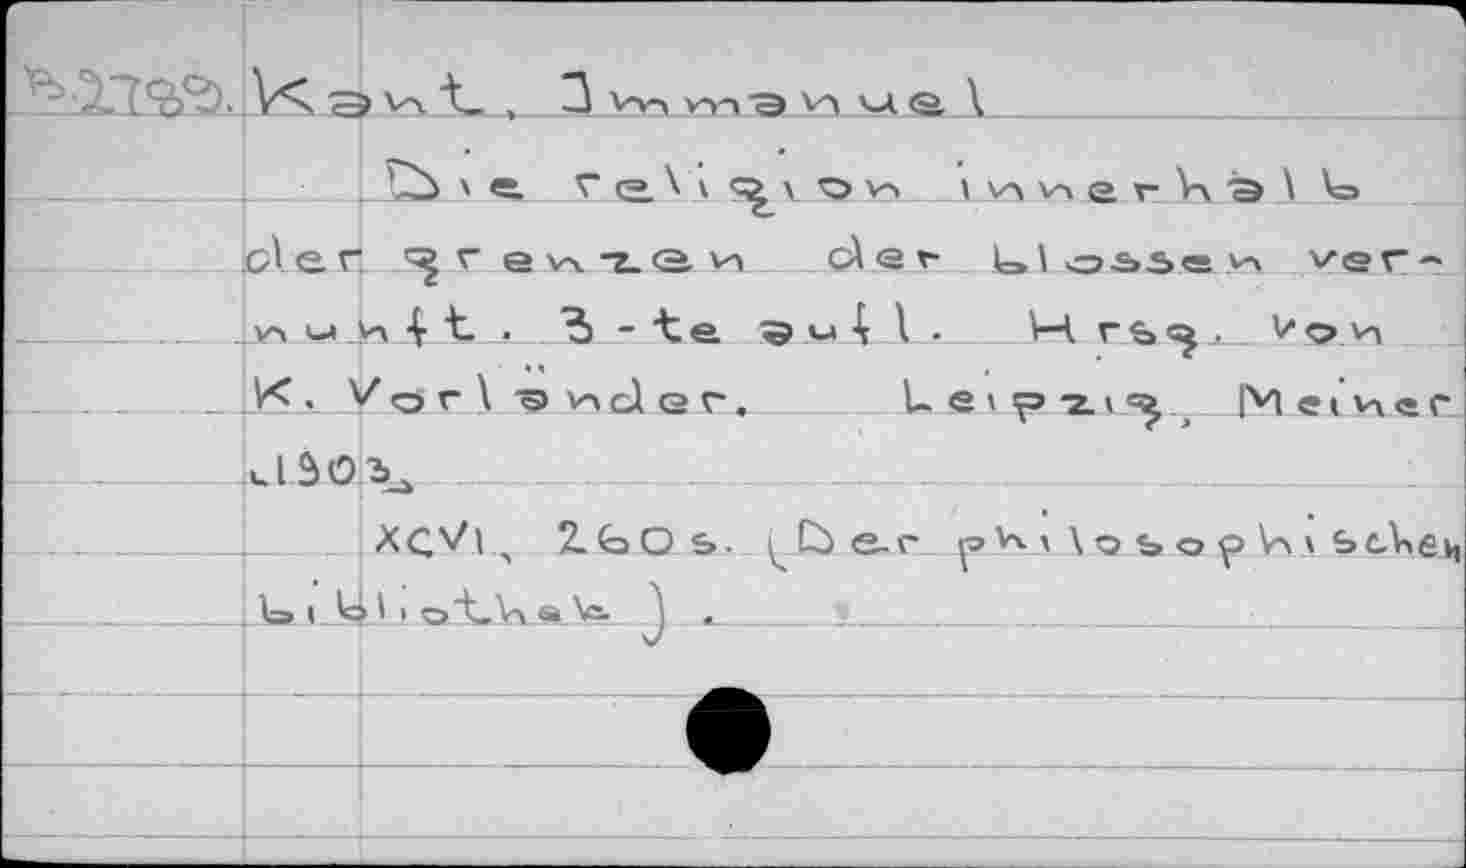 Kant, Immanuel
Die religion innerhalb
der grenzen der blossen ver-
nunft. 3-te aufl. Hrsg. von
K. Vorländer. Leipzig, Meiner
1903.
XCVI, 260 s. (Der philosophischen
bibliothek).